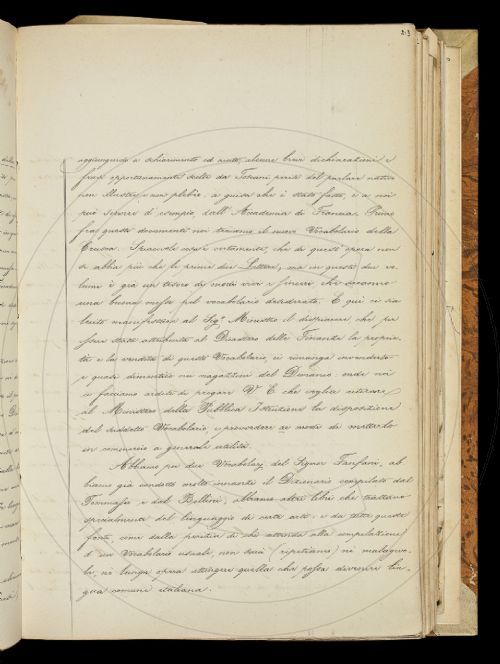 213
aggiungendo a schiarimento ed aiuto, alcune brevi dichiarazioni e
frasi opportunamente scelte da Toscani periti del parlare nativo
non illustre, non plebeo, a guisa che è stato fatto, e a noi
può servire d'esempio, dell'Accademia di Francia. Primo
fra questi documenti noi teniamo il nuovo Vocabolario della
Crusca. Spiacevole cosa è certamente, che di quest'opera non
si abbia più che le prime due Lettere, ma in questi due vo-
lumi è già un tesoro di modi vivi e sinceri che daranno
una buona messe pel vocabolario desiderato. E qui ci sia
lecito manifestare al Sigr. Ministro il dispiacere che, per
essere stata attribuita al Dicastero delle Finanze la proprie-
tà e la vendita di questo Vocabolario, ei rimanga invenduto
e quasi dimenticato nei magazzini del Demanio: onde noi
ci facciamo arditi di pregare V. E. che voglia ottenere
al Ministero della Pubblica Istruzione la disposizione
del suddetto Vocabolario, e provvedere ai modi di metterlo
in commercio a generale utilità.
Abbiamo poi due Vocabolarj del Signor Fanfani, ab-
biamo già condotto molto innanzi il Dizionario compilato dal
Tommaseo e dal Bellini, abbiamo altri libri che trattano
specialmente del linguaggio di certe arti: e da tutte queste
fonti, come dalla perizia di chi attenda alla compilazione
d'un Vocabolario usuale, non sarà (ripetiamo) nè malagevo-
le, nè lunga opera attingere quella che possa divenire lin-
gua comune italiana.